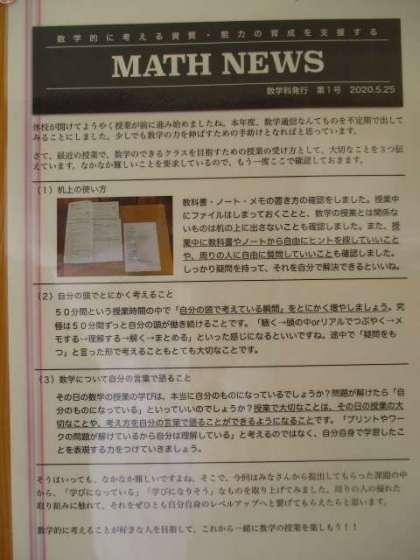 数学的に考える資質・能力の育成を支援する
MATH NEWS
数学科発行 第1号 2020.5.25
休校が開けてようやく授業が前に進み始めましたね。本年度、数学通信なんてものを不定期で出して
みることにしました。少しでも数学の力を伸ばすための手助けとなればと思っています。
さて、最近の授業で、数学のできるクラスを目指すための授業の受け方として、大切なことを3つ伝
えています。なかなか難しいことを要求しているので、もう一度ここで確認しておきます。
(1) 机上の使い方
教科書・ノート・メモの置き方の確認をしました。授業中
にファイルはしまっておくことと、数学の授業とは関係な
いものは机の上に出さないことも確認しました。また、授
業中に教科書やノートから自由にヒントを探していいこと
や、周りの人に自由に質問していいことも確認しました。
しっかり疑問を持って、それを自分で解決できるといいね。
(2) 自分の頭でとにかく考えること
50分間という授業時間の中で「自分の頭で考えている瞬間」をとにかく増やしましょう。究
極は50分間ずっと自分の頭が働き続けることです。「聴く→頭の中orリアルでつぶやく→メ
モする→理解する→解く→まとめる」といった感じになるといいですね。途中で「疑問をも
つ」と言った形で考えることもとても大切なことです。
(3) 数学について自分の言葉で語ること
その日の数学の授業の学びは、本当に自分のものになっているでしょうか？問題が解けたら「自
分のものになっている」といっていいのでしょうか？授業で大切なことは、その日の授業の大
切なことや、考え方を自分の言葉で語ることができるようになることです。「プリントやワー
クの問題が解けているから自分は理解している」と考えるのではなく、自分自身で学習したこ
とを表現する力をつけていきましょう。
そうはいっても、なかなか難しいですよね。そこで、今回はみなさんから提出してもらった課題の中
から、「学びになっている」「学びになりそう」なものを取り上げてみました。周りの人の優れた
取り組みに触れて、それをぜひとも自分自身のレベルアップへと繋げてもらえたらと思います。
数学的に考えることが好きな人を目指して、これから一緒に数学の授業を楽しもう！！